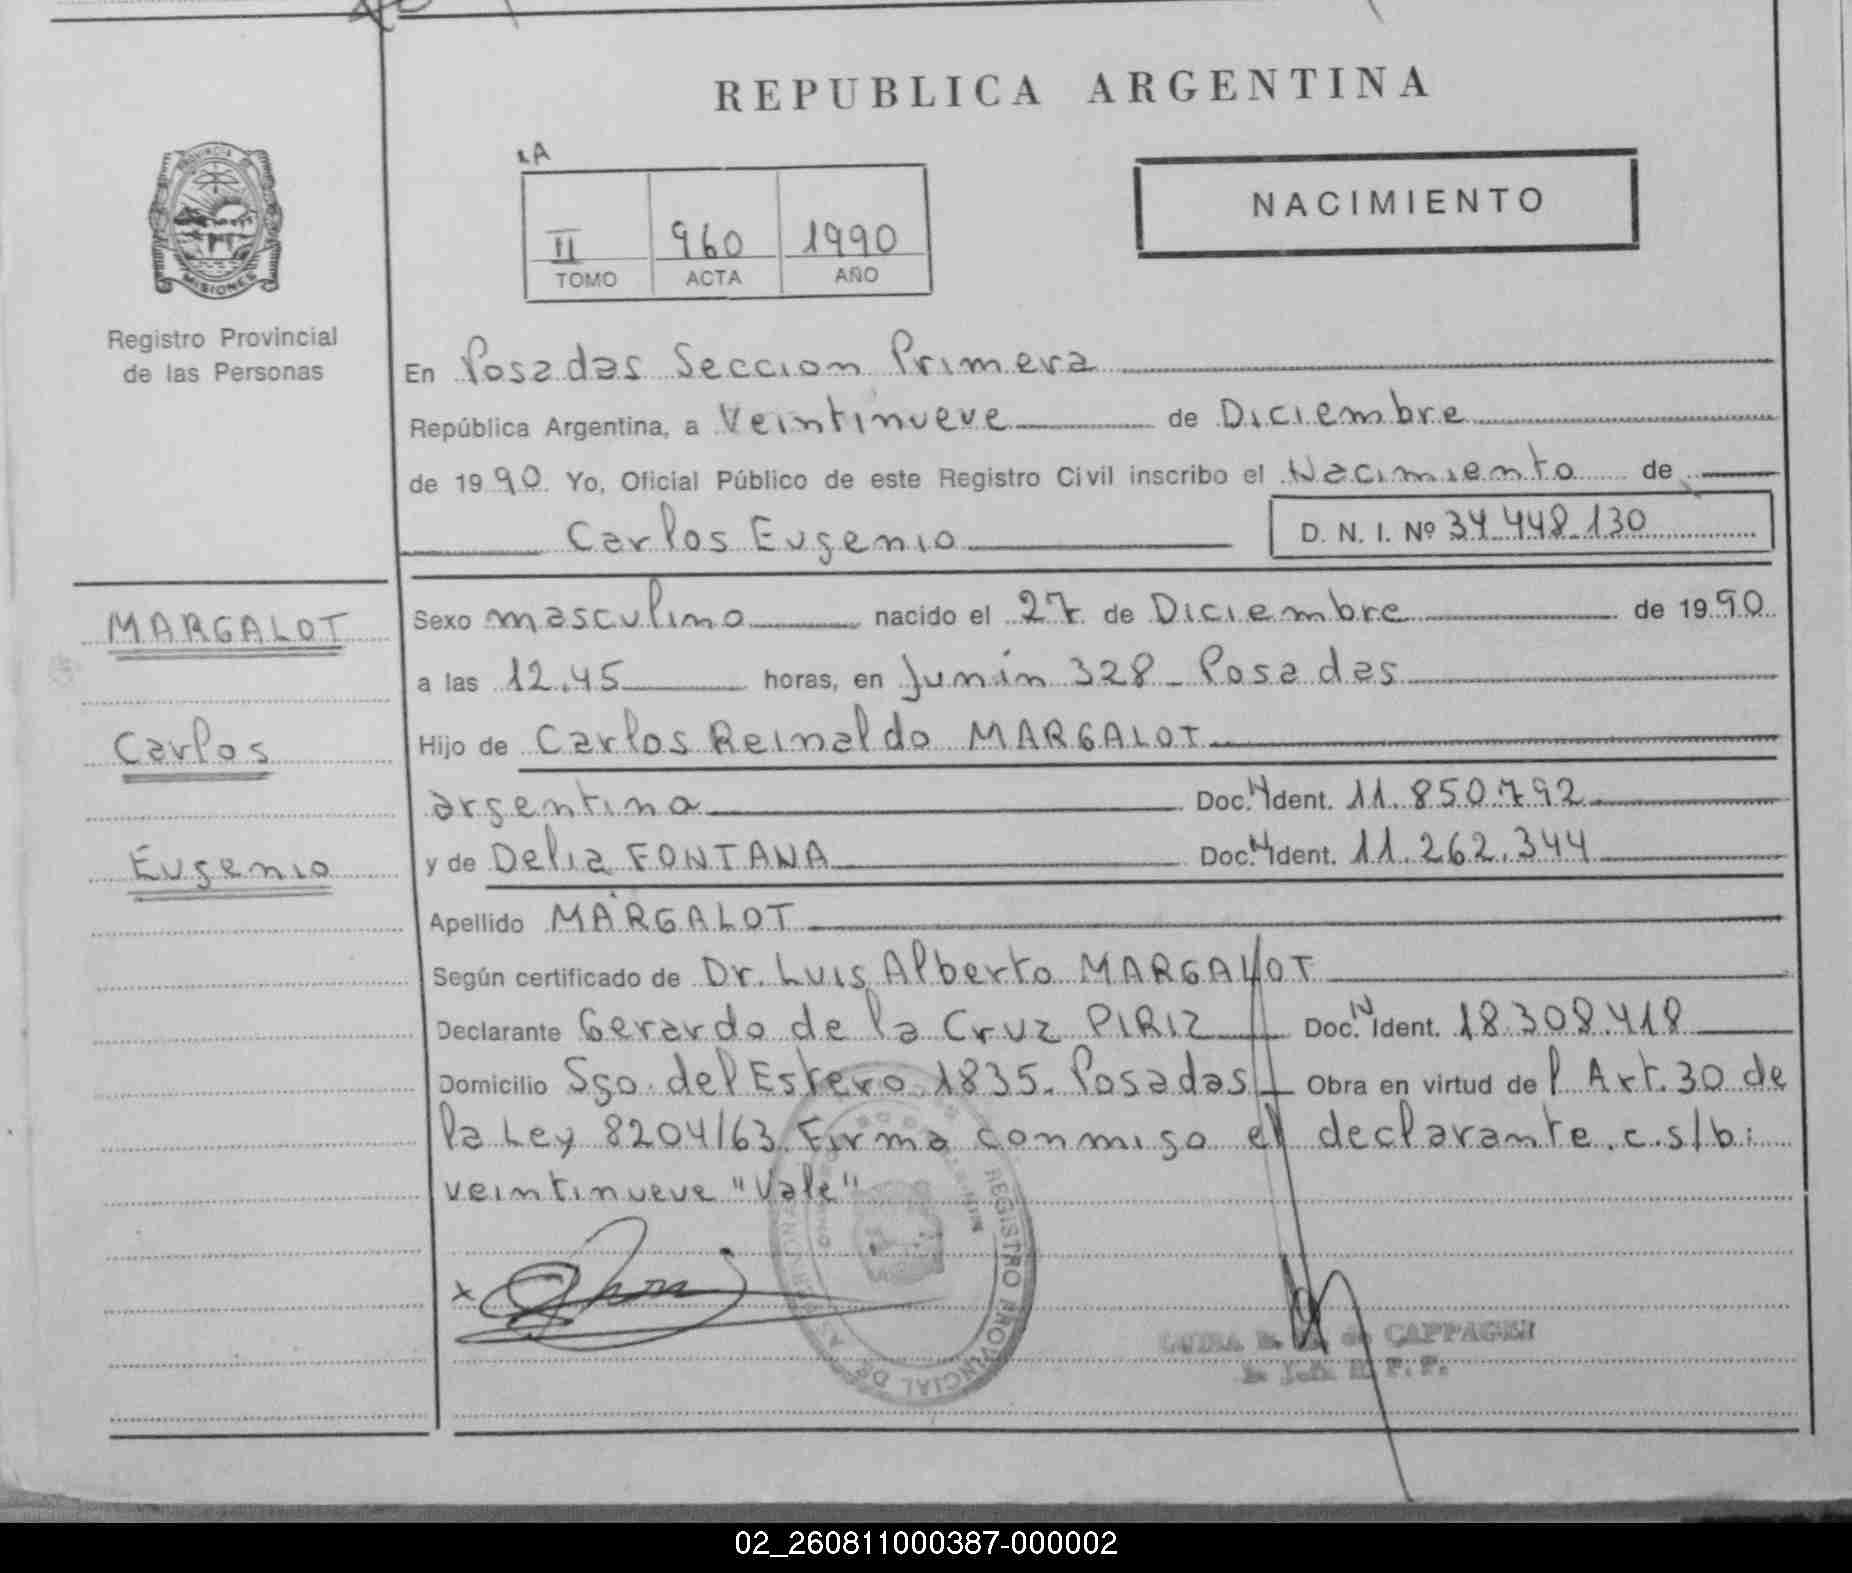 REPUBLICA ARGENTINA
PROVINCIA DE
MISIONES
Registro Provincial
de las Personas
1A
II 960 1990
TOMO ACTA AÑO
NACIMIENTO
En Posadas Seccion Primera
República Argentina, a Veintinueve de Diciembre
de 1990. Yo, Oficial Público de este Registro Civil inscribo el Nacimiento de
Carlos Eugenio D. N. I. Nº 34.448.130
MARGALOT
Carlos
Eugenio
Sexo masculino nacido el 27 de Diciembre de 1990
a las 12.45 horas, en Junín 328 - Posadas
Hijo de Carlos Reinaldo MARGALOT
argentina Doc. N Ident. 11.850.792
y de Delia FONTANA Doc. N Ident. 11.262.344
Apellido MARGALOT
Según certificado de Dr. Luis Alberto MARGALOT
Declarante Gerardo de la Cruz PIRIZ Doc. N Ident. 18.308.418
Domicilio Sgo. del Estero 1835. Posadas - Obra en virtud del Art. 30 de
la Ley 8204/63. Firma conmigo el declarante. c.s/b:
veintinueve "Vale"
x
REGISTRO PROVINCIAL DE
de CAPPAGLI
02_260811000387-000002